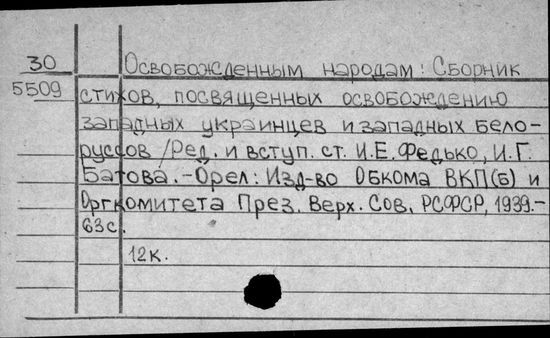 30 Освобожденным народам: Сборник
5509 стихов, посвященных освобождению
западных украинцев и западных бело-
руссов /Ред. и вступ. ст. И.Е.Федько, И.Г.
Батова.-Орел: Изд-во Обкома ВКП(б) и
Оргкомитета През. Верх. Сов. РСФСР, 1939.-
63с.
12к.